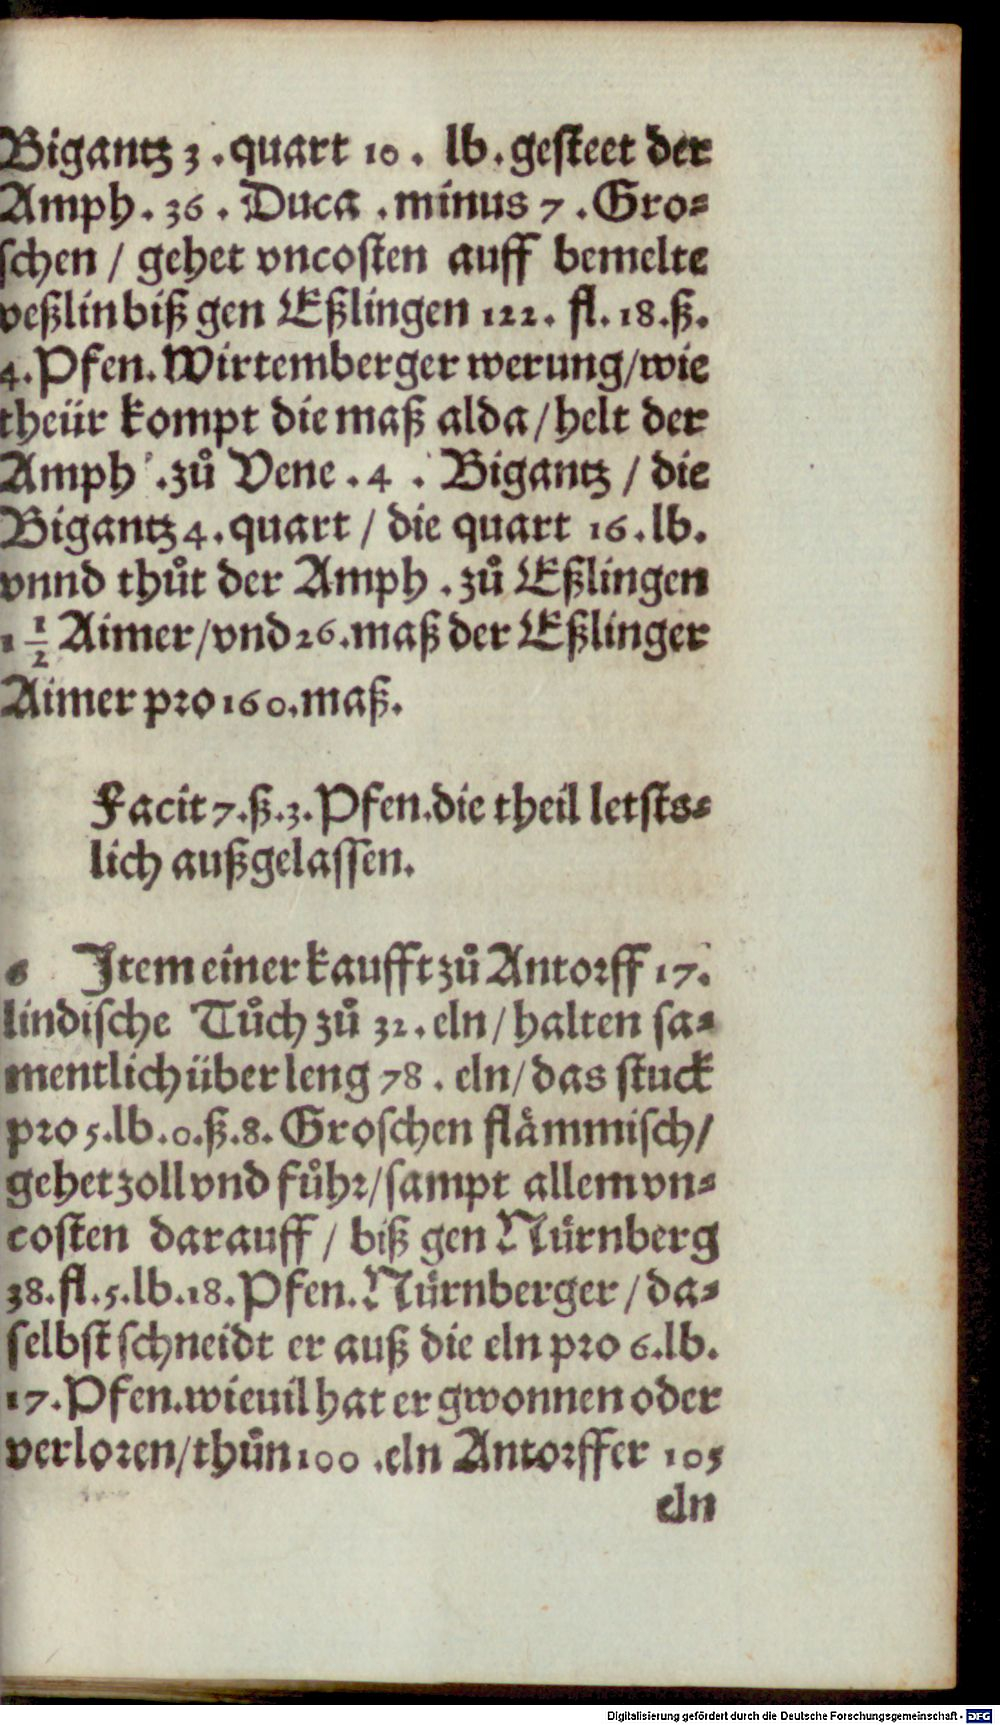 Bigantz 3 . quart 10 . lb . gesteet der
Amph . 36 . Duca . minus 7 . Gro⸗
schen / gehet vncosten auff bemelte
veßlin biß gen Eßlingen 122. fl. 18.ß.
4. Pfen. Wirtemberger werung/wie
theür kompt die maß alda / helt der
Amph . zů Vene . 4 . Bigantz / die
Bigantz 4. quart / die quart 16. lb.
vnnd thůt der Amph . zů Eßlingen
1 1/2 Aimer/vnd 26. maß der Eßlinger
Aimer pro 160. maß.
Facit 7. ß. 3. Pfen. die theil letsts⸗
lich außgelassen.
6 Item einer kaufft zů Antorff 17.
lindische Tůch zů 32. eln / halten sa⸗
mentlich über leng 78 . eln/das stuck
pro 5. lb. 0. ß. 8. Groschen flåmmisch/
gehet zoll vnd fůhr/sampt allem vn⸗
costen darauff / biß gen Nürnberg
38. fl. 5. lb. 18. Pfen. Nürnberger / da⸗
selbst schneidt er auß die eln pro 6. lb.
17. Pfen. wieuil hat er gwonnen oder
verloren/thůn 100 . eln Antorffer 105
eln
Digitalisierung gefördert durch die Deutsche Forschungsgemeinschaft - DFG